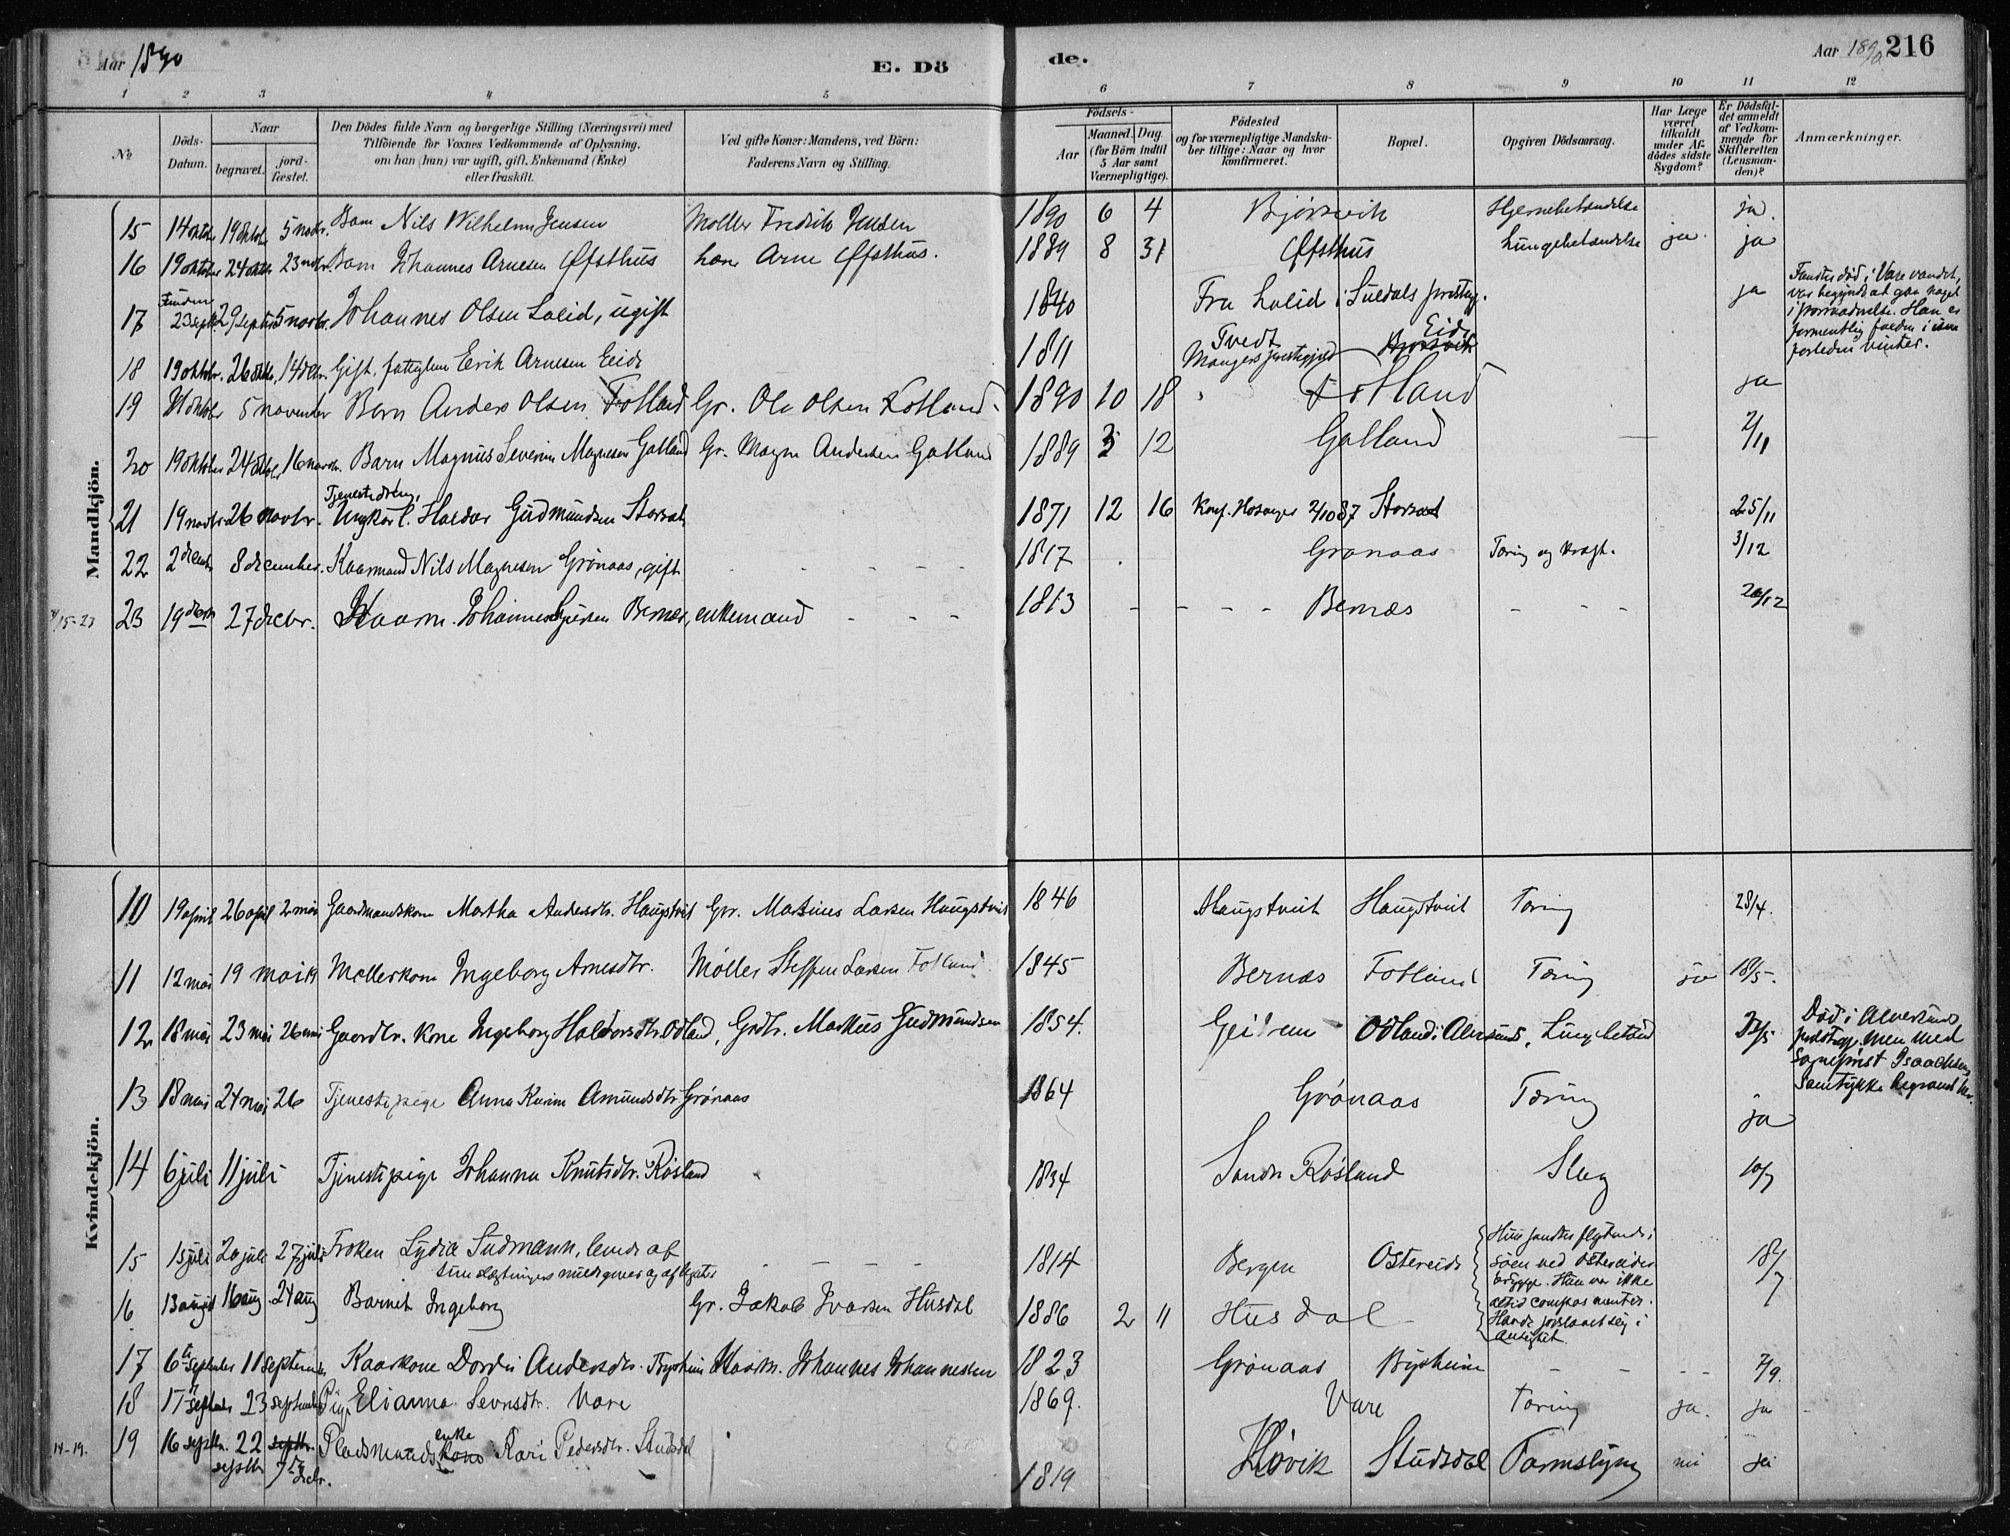 Aar 1890
E. Dö
de.
Aar 1890 216
1 2 3 4 5 6 7 8 9 10 11 12
No
Döds-Datum.
Naar
begravet.
jord-fæstet.
Den Dödes fulde Navn og borgerlige Stilling (Næringsvei) med
Tilföiende for Voxnes Vedkommende af Oplysning.
om han (hun) var ugift, gift, Enkemand (Enke)
eller fraskilt.
Ved gifte Koner: Mandens, ved Börn:
Faderens Navn og Stilling.
Födsels-
Aar
Maaned. Dag
(for Börn indtil
5 Aar samt
Værnepligtige).
Födested
og for værnepligtige Mandska-
ber tillige: Naar og hvor
konfirmeret.
Bopæl.
Opgiven Dödsaarsag.
Har Læge
været
tilkaldt
under Af-
dödes sidste
Sygdom?
Er Dödsfal-
det anmeldt
af Vedkom-
mende for
Skifteretten
(Lensman-
den)?
Anmærkninger.
Mandkjön.
15 14 oktbr 19 oktob. 5 novbr. Barn Nils Wilhelm Jensen Møller Fredrik Jensen 1890 6 4 Bjørsvik Hjernebetændelse ja.
16 19 oktober 24 oktbr 23 novbr. Barn Johannes Arnesen Øfsthus Arne Øfsthus. 1889 8 31 Øfsthus Lungebetændelse ja. ja
17 Funden 23 septbr 29 septbr 5 novbr. Johannes Olsen Lolid, ugift 1840 Fra Lolid i Suldals prstgj. ja
Fandtes død i Vare vandet,
var begyndt at gaa noget
i forraadnelse. Han er
formentlig falden i
forleden vinter.
18 19 oktobr. 26 oktbr, 14 dcbr. Gift, fattiglem Erik Arnesen Eide 1811 Tvedt Mangers prestegjeld Eide Bjørsvik
19 31 oktober 5 november Barn Anders Olsen Fotland Gr. Ole Olsen Fotland 1890 10 18 Fotland ja
20 19 oktober 24 oktbr, 16 novbr. Barn Magnus Severin Magnesen Gotland Gr. Magne Andersen Gotland 1889 3 12 Gotland 2/11
21 19 novbr 26 novbr. Tjenestedreng, Ungkarl. Haldor Gudmundsen Storsæt 1871 12 16 Konf. Hosanger 2/10 87 Storsæt 25/11
22 2 decembr 8 december. Kaarmand Nils Magnesen Grønaas, gift 1817 Grønaas Tæring og kræft. 3/12
15-23 23 19 decbr 27 decbr. Kaarm. Johannes Bernæs, enkemand 1813 Bernæs 20/12
Kvindekjön.
10 19 april 26 april 2 mai Gaardmandskone Martha Andersdtr. Haugstveit Gr. Martinus Larsen Haugstveit 1846 Haugstveit Haugstveit Tæring 28/4.
11 12 mai 19 mai Møllerkone Ingeborg Arnesdtr. Møller Steffen Larsen Fotland 1845 Bernæs Fotland Tæring ja 18/5.
12 18 mai 23 mai 26 mai Gaardbr. kone Ingeborg Haldorsdtr. Odland, Grdbr. Markus Gudmundsen 1854. Geitrem Odland i Alversund, Lungebetænd
Død i Alversunds
prestegj. men med
sogneprest Isaachsens
samtykke begravet her.
13 18 mai 24 mai 26 Tjenestepige Anna Karine Amundsdtr Grønaas 1864 Grønaas Tæring ja
14 6 juli 11 juli Tjenestepige Johanna Knutsdtr. Røsland 1834 Søndr Røsland Slag 10/7
15 15 juli 20 juli 27 juli Frøken Lydia Sudmann, levede af
sine slægtninges milde gaver og af legater 1814 Bergen Ostereide 18/7
Hun fandtes flydende i
søen ved Ostereides
brygge. Hun var ikke
altid compos mentis.
Havde forslaaet sig i
ansigtet.
16 13 august 16 aug. 24 aug Barnet Ingeborg Gr. Jakob Ivarsen Husdal 1886 2 11 Husdal
17 6 september 11 september Kaarkone Dordei Andersdtr. Byshein Kaarm. Johannes Johannesen 1823 Grønaas Byshein 7/9.
18 17 septbr 23 september Pige Elianna Sevrnsdtr. Vare 1869. Vare Tæring ja. ja
14-19. 19 16 septbr. 22 septbr 7 decbr. Pladsmands enke kone Kari Pedersdtr. Studsdal 1819 Høvik Studsdal Tarmslyng nei ja